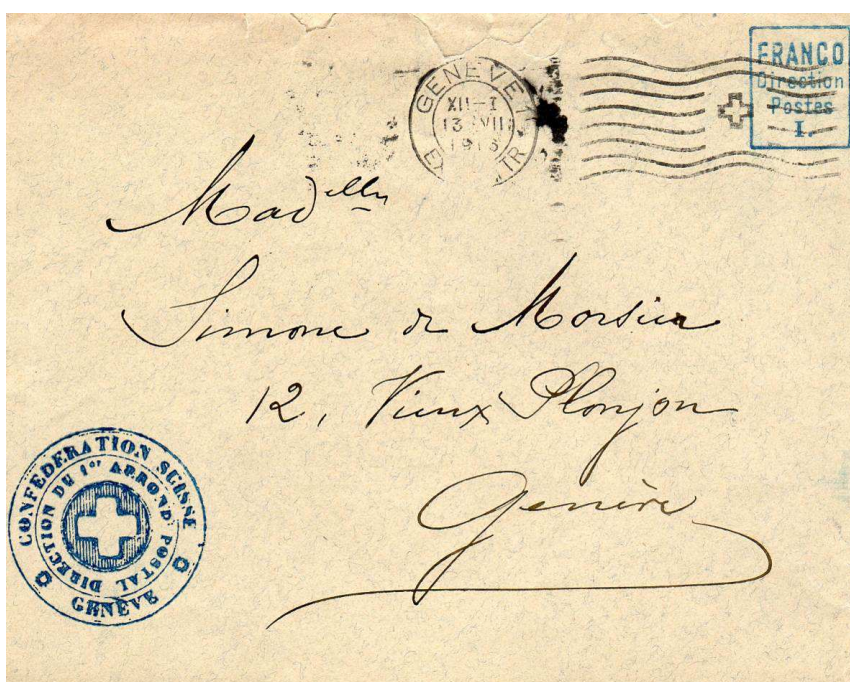 GENÈVE 1
XII-I
13 VII
1913
FRANCO
Direction
Postes
I.
Mad<sup>elle</sup>
Simone de Morsier
12, Vieux Plonjon
Genève
CONFÉDÉRATION SUISSE
DIRECTION DU 1er ARROND<sup>t</sup> POSTAL
GENÈVE